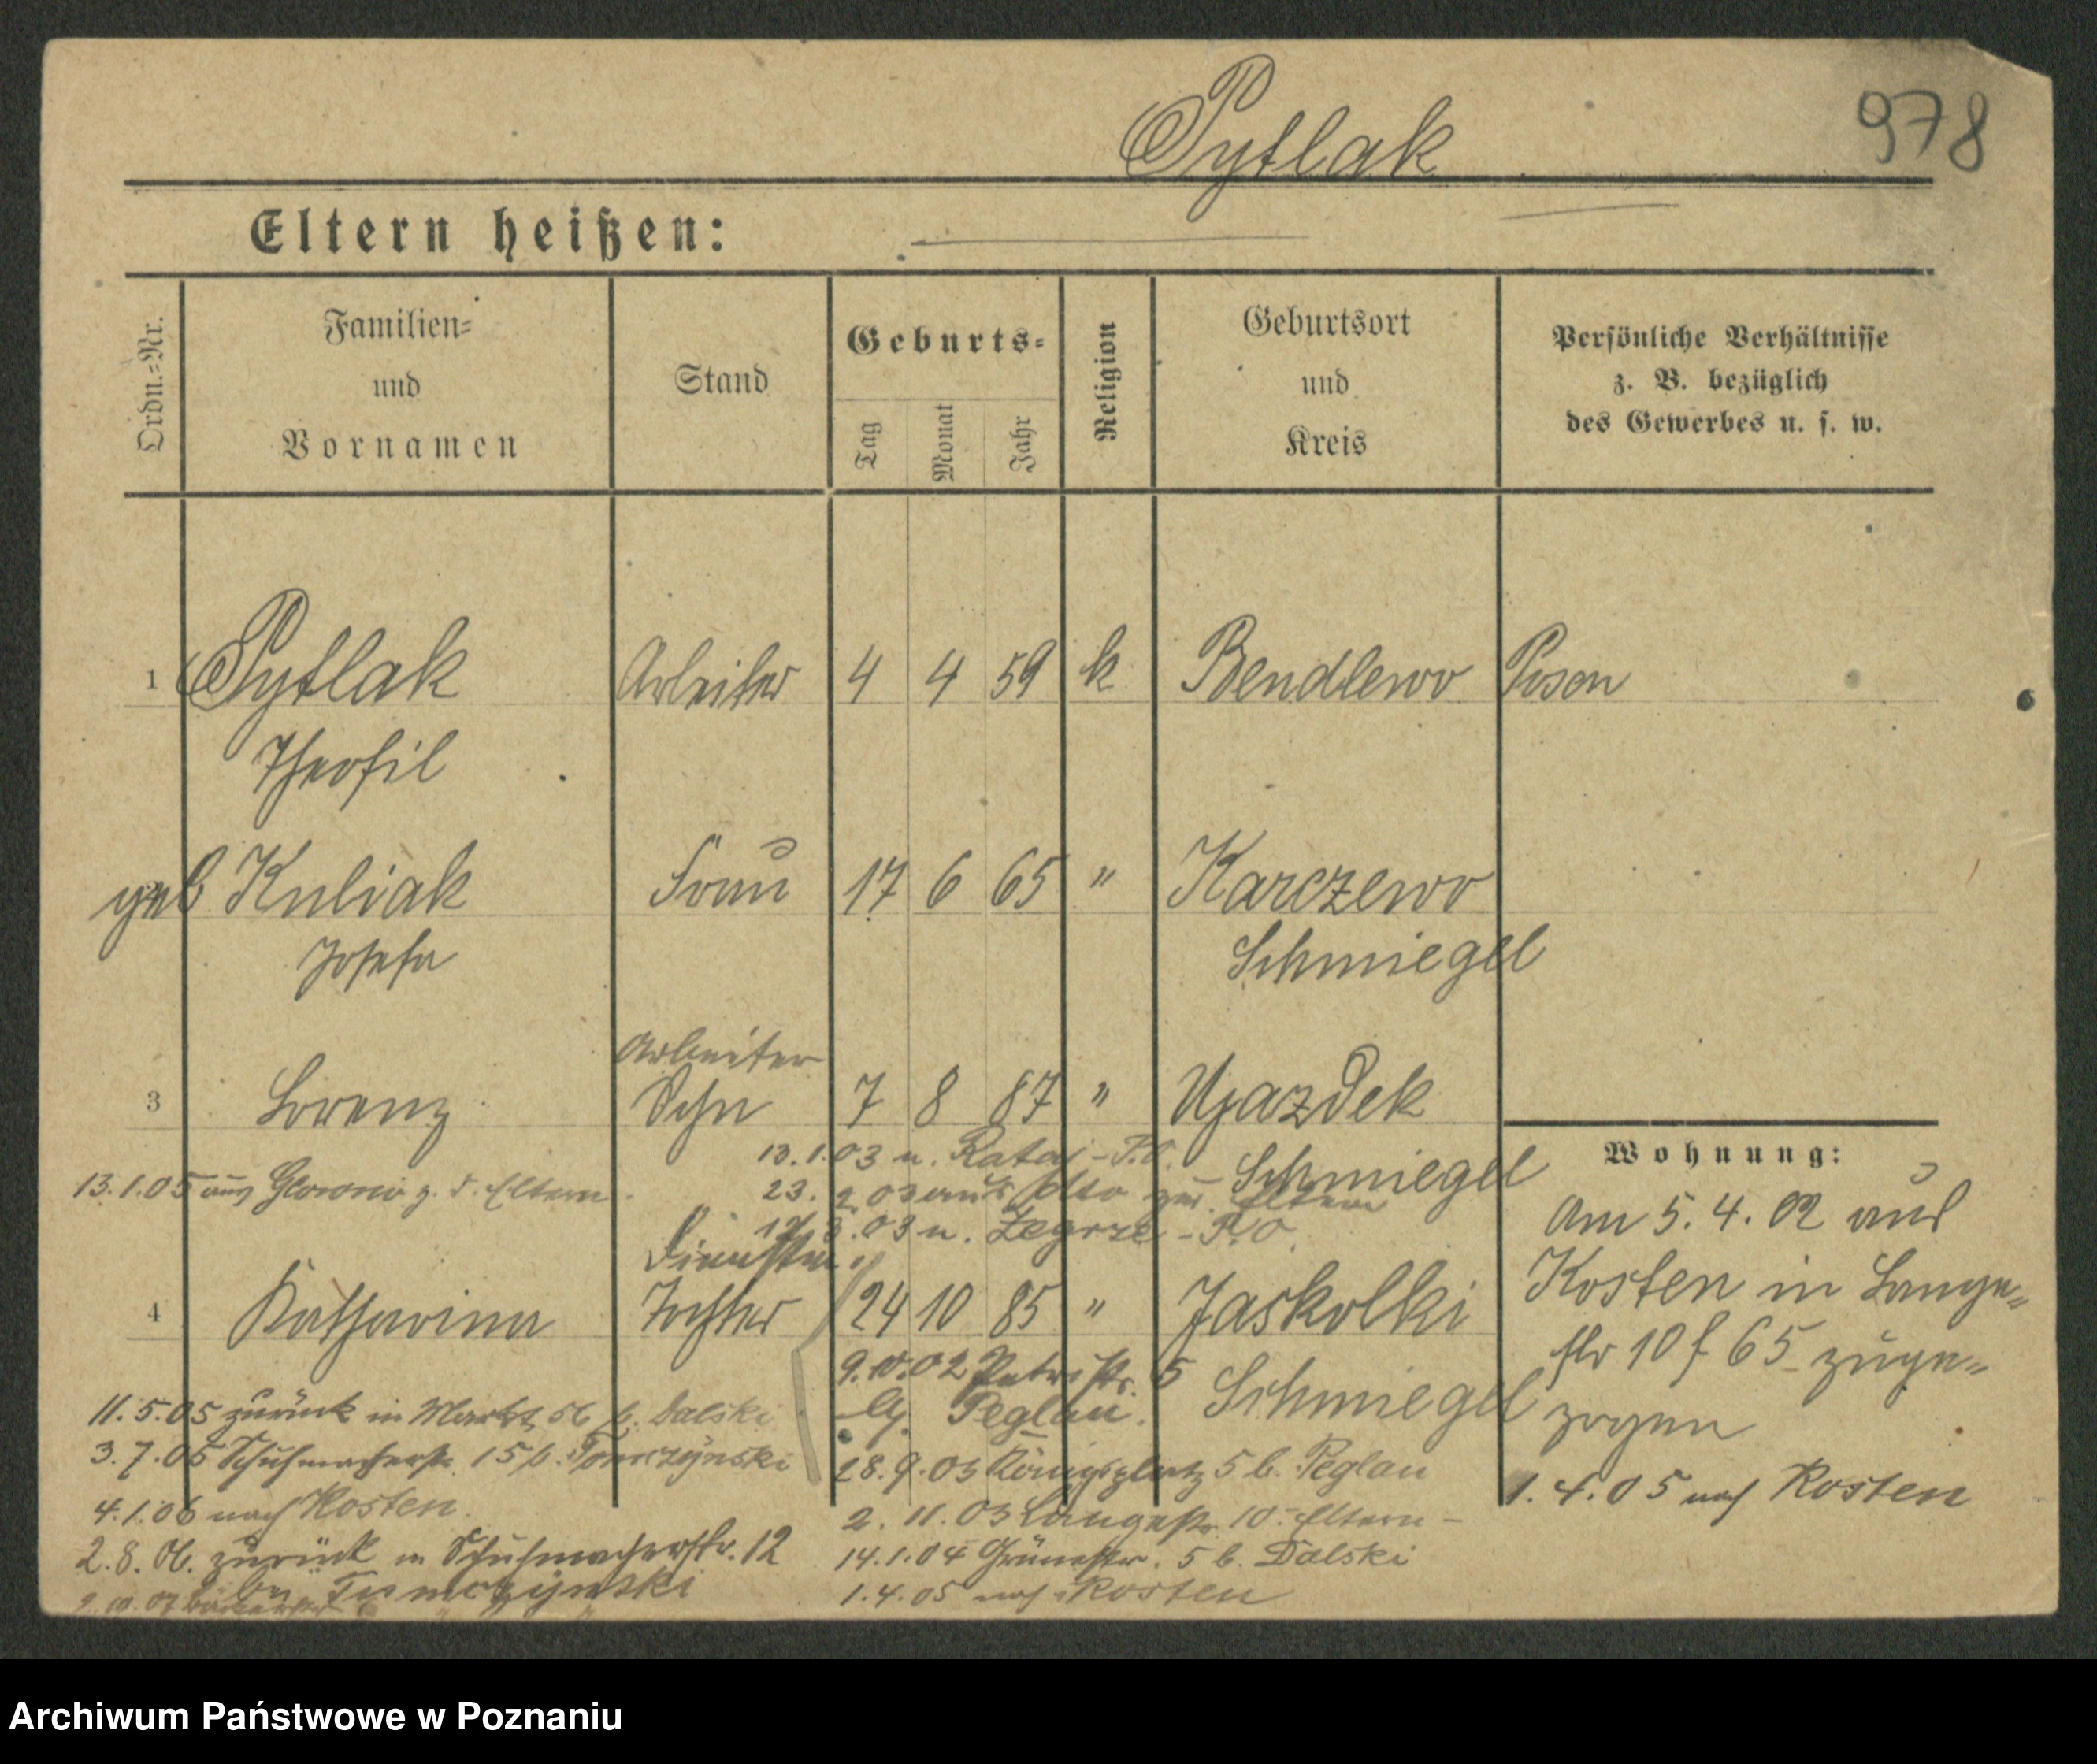 Pytlak
978
Eltern heißen:
Ordn.-Nr.
Familien-
und
Vornamen
Stand
Geburts-
Tag
Monat
Jahr
Religion
Geburtsort
und
Kreis
Persönliche Verhältnisse
z. B. bezüglich
des Gewerbes u. s. w.
1 Pytlak Arbeiter 4 4 59 k Bendlewo Posen
Theofil
geb Kuliak Frau 17 6 65 " Karczewo
Josefa Schmiegel
Arbeiter
3 Lorenz Sohn 7 8 87 " Ujazdek
Schmiegel
13.1.03 n. Rataj - P.O.
13.1.05 aus z. d. Eltern
23. 2 03 aus zur Eltern
17/3.03 n. Zegrze - P.O.
4 Katharina Tochter 24 10 85 " Jaskolki
Schmiegel
9.10.02 5
Peglau.
28.9.03 Königsplatz 5 b. Peglau
2. 11. 03 Langestr. 10 - Eltern -
14.1.04 Grünestr. 5 b. Dalski
1.4.05 nach Kosten
11.5.05 zurück in Markt 56 b. Dalski
3.7.05 Schuhmacherstr. 15 b.
4.1.06 nach Kosten
2.8.06. zurück in Schuhmacherstr. 12
Wohnung:
Am 5.4.02 aus
Kosten in Lange-
str 10 f 65 zuge-
zogen
1.4.05 nach Kosten
Archiwum Państwowe w Poznaniu